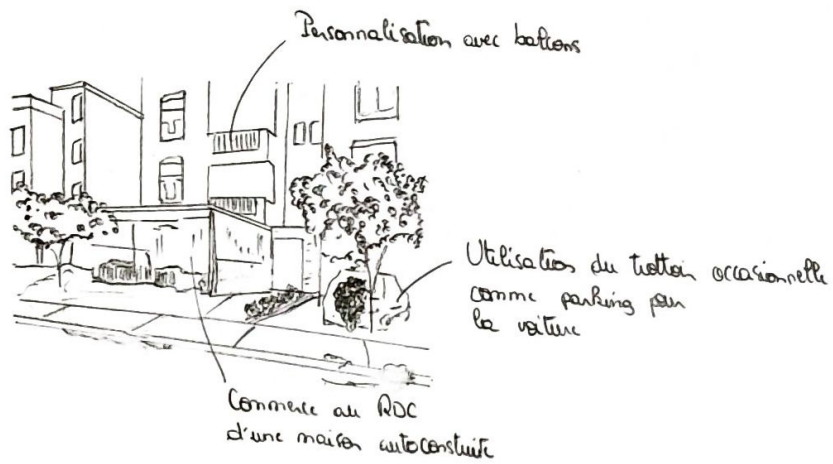 Personnalisation avec balcons
Utilisation du trottoir occasionnelle
comme parking pour
la voiture
Commerce au RDC
d'une maison autoconstruite